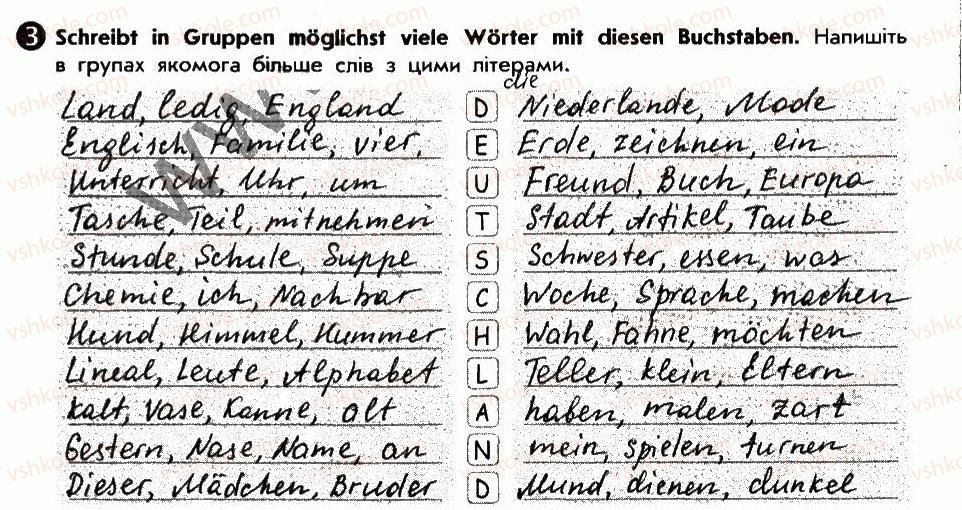 3 Schreibt in Gruppen möglichst viele Wörter mit diesen Buchstaben. Напишіть
в групах якомога більше слів з цими літерами.
die
Land, ledig, England D Niederlande, Mode
Englisch, Familie, vier, E Erde, zeichnen, ein
Unterricht, Uhr, um U Freund, Buch, Europa
Tasche, Teil, mitnehmen T Stadt, Artikel, Taube
Stunde, Schule, Suppe S Schwester, essen, was
Chemie, ich, Nachbar C Woche, Sprache, machen
Hund, Himmel, Hummer H Wahl, Fahne, möchten
Lineal, Leute, Alphabet L Teller, klein, Eltern
kalt, Vase, Kanne, alt A haben, malen, zart
Gestern, Nase, Name, an N mein, spielen, turnen
Dieser, Mädchen, Bruder D Mund, dienen, dunkel